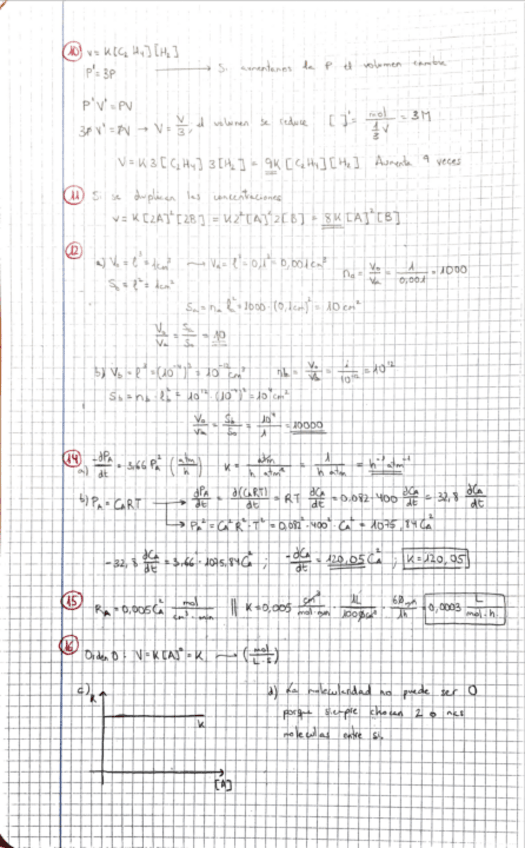 10 v = K[C₂H₄][H₂]
P' = 3P → Si aumentamos la P el volumen cambia
P'V' = PV
3P V' = PV → V = V/3, el volumen se reduce [ ]' = mol / (1/3 V) = 3M
V = K 3[C₂H₄] 3[H₂] = 9K[C₂H₄][H₂] Aumenta 9 veces
11 Si se duplican las concentraciones
v = K[2A]²[2B] = K2²[A]²2[B] = 8K[A]²[B]
12
a) V₀ = l³ = 1cm³ → Vₐ = l³ = 0,1³ = 0,001cm³ nₐ = V₀/Vₐ = 1/0,001 = 1000
S₀ = l² = 1cm²
Sₐ = nₐ l² = 1000·(0,1cm)² = 10cm²
= 10
b) V_b = l³ = (10⁻⁴)³ = 10⁻¹²cm³ n_b = V₀/V_b = 1/10⁻¹² = 10¹²
S_b = n_b · l_b² = 10¹² · (10⁻⁴)² = 10⁴cm²
= S_b/S₀ = 10⁴/1 = 10000
14
a) -dP_A/dt = 3,66 P_A² (atm/h) K = atm / h atm² = 1 / h atm = h⁻¹ atm⁻¹
b) P_A = C_A RT → dP_A/dt = d(C_A RT)/dt = RT dC_A/dt = 0,082·400 dC_A/dt = 32,8 dC_A/dt
→ P_A² = C_A² R² · T² = 0,082² · 400² · C_A² = 1075,84 C_A²
-32,8 dC_A/dt = 3,66 · 1075,84 C_A² ; -dC_A/dt = 120,05 C_A² ; K = 120,05
15 R_A = 0,005 C_A² mol / cm³ · min || K = 0,005 cm³ / mol · min · 1L / 1000cm³ · 60min / 1h = 0,0003 L / mol · h
16
Orden 0 : V = K[A]⁰ = K → (mol / L · s)
c) R
K
[A]
d) La molecularidad no puede ser 0
porque siempre chocan 2 o mas
moleculas entre si.